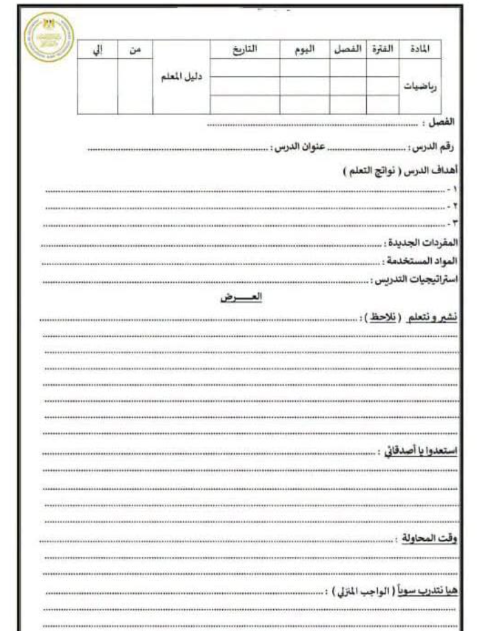 المادة الفترة الفصل اليوم التاريخ دليل المعلم من إلي
رياضيات
الفصل : ........................................
رقم الدرس : ........................ عنوان الدرس : ........................................
أهداف الدرس ( نواتج التعلم )
١ - ........................................
٢ - ........................................
٣ - ........................................
المفردات الجديدة : ........................................
المواد المستخدمة : ........................................
استراتيجيات التدريس : ........................................
العـــــرض
نشير و نتعلم ( نلاحظ ) : ........................................
استعدوا يا أصدقائي : ........................................
وقت المحاولة : ........................................
هيا نتدرب سوياً ( الواجب المنزلي ) : ........................................